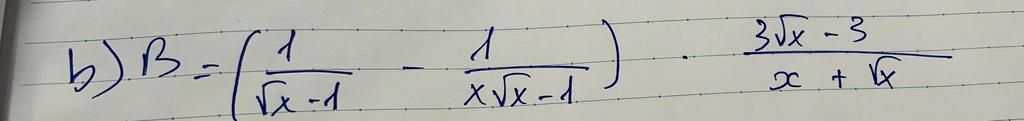 b) B = (1/(√x - 1) - 1/(x√x - 1)) . (3√x - 3)/(x + √x)